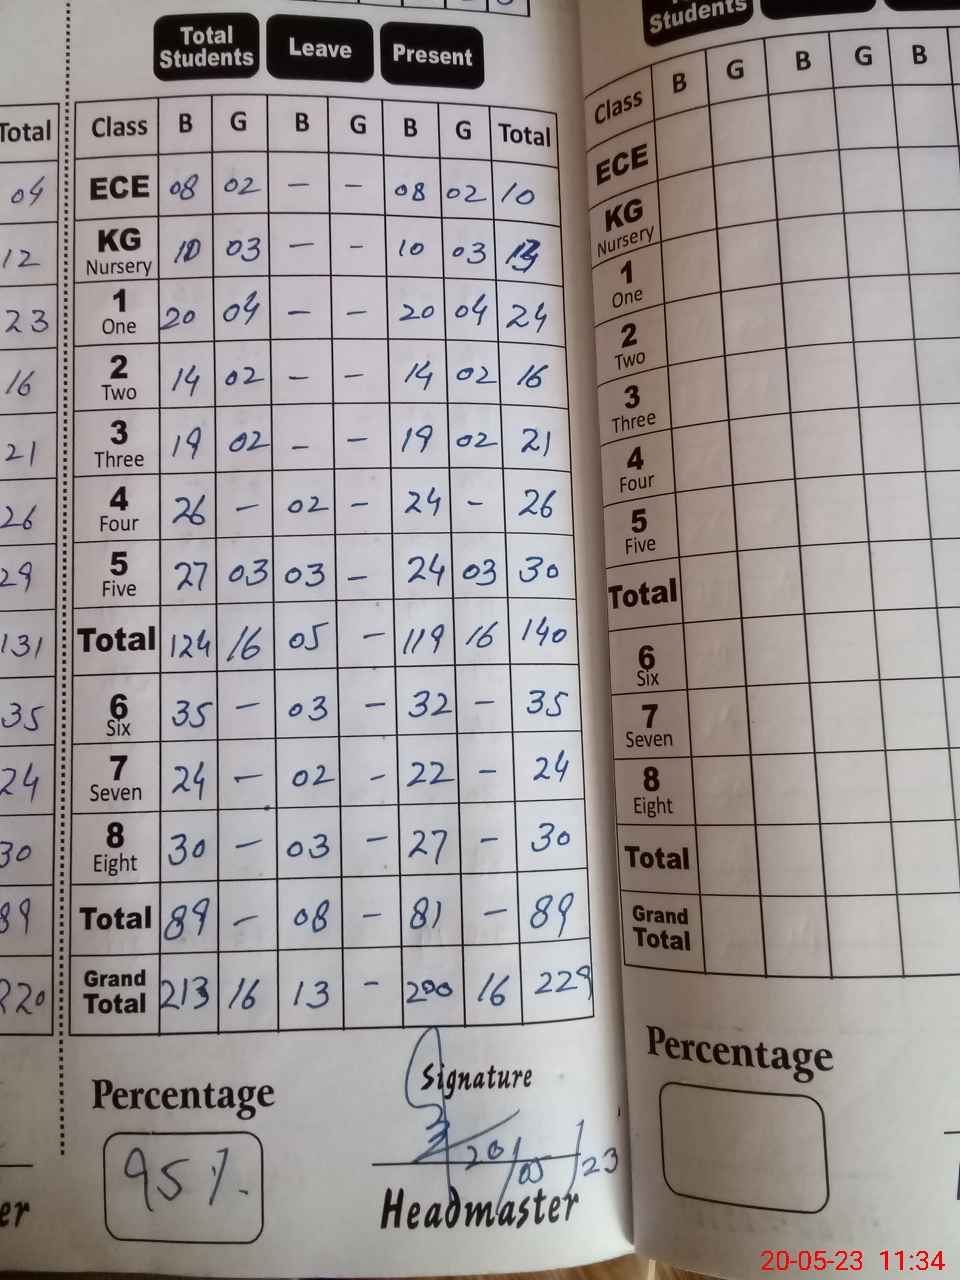 Total Students Leave Present
Total Class B G B G B G Total
04 ECE 08 02 — — 08 02 10
12 KG Nursery 10 03 — - 10 03 13
23 1 One 20 04 — — 20 04 24
16 2 Two 14 02 — — 14 02 16
21 3 Three 19 02 - — 19 02 21
26 4 Four 26 — 02 — 24 - 26
29 5 Five 27 03 03 — 24 03 30
131 Total 124 16 05 — 119 16 140
35 6 Six 35 — 03 — 32 — 35
24 7 Seven 24 — 02 - 22 — 24
30 8 Eight 30 — 03 — 27 — 30
89 Total 89 — 08 — 81 — 89
220 Grand Total 213 16 13 — 200 16 229
Percentage
95%.
Signature
20/05/23
Headmaster
er
Students
Class B G B G B
ECE
KG Nursery
1 One
2 Two
3 Three
4 Four
5 Five
Total
6 Six
7 Seven
8 Eight
Total
Grand Total
Percentage
20-05-23 11:34